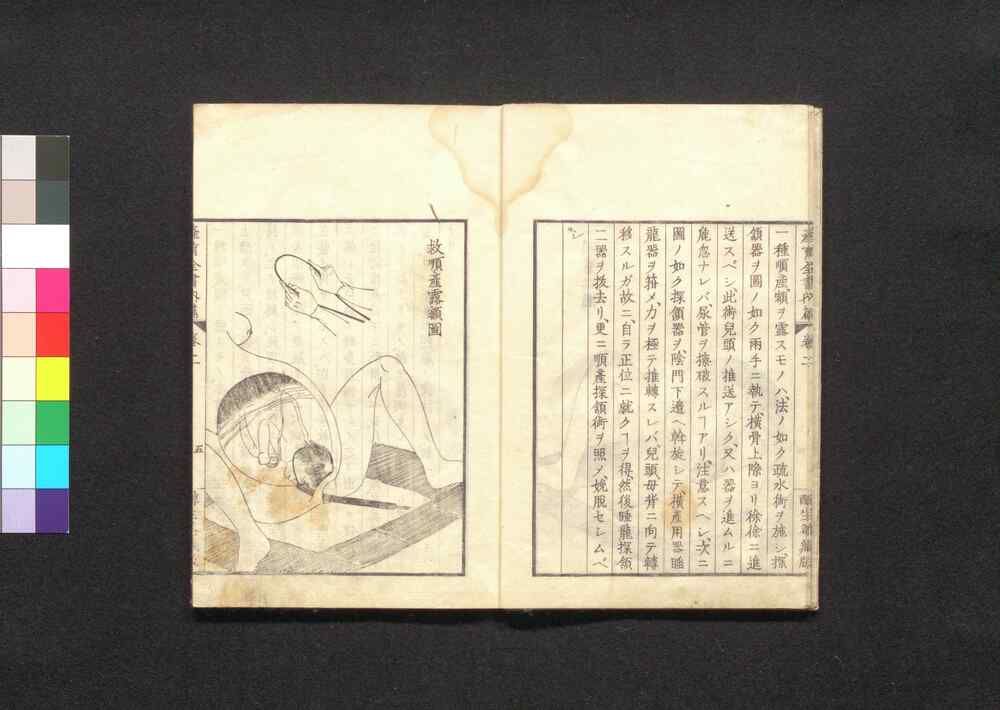 一種順產、額ヲ露スモノハ、法ノ如ク疏水術ヲ施シ、探
頷器ヲ圖ノ如ク兩手ニ執テ、橫骨上際ヨリ徐徐ニ進
送スベシ、此術兒頭ノ推送アシク、又ハ器ヲ進ムルニ
麁忽ナレバ、尿管ヲ擦破スルヿアリ、注意スヘシ、次ニ
圖ノ如ク探頷器ヲ、陰門下邊ヘ斡旋シテ、橫產用器睡
龍器ヲ搢メ、力ヲ極テ推轉スレバ、兒頭、母背ニ向テ轉
移スルガ故ニ、自ラ正位ニ就クヿヲ得、然後睡龍探頷
二器ヲ拔去リ、更ニ順產探頷術ヲ照メ、娩脫セシムベ
シ
卷二
救順產露額圖
卷二
五